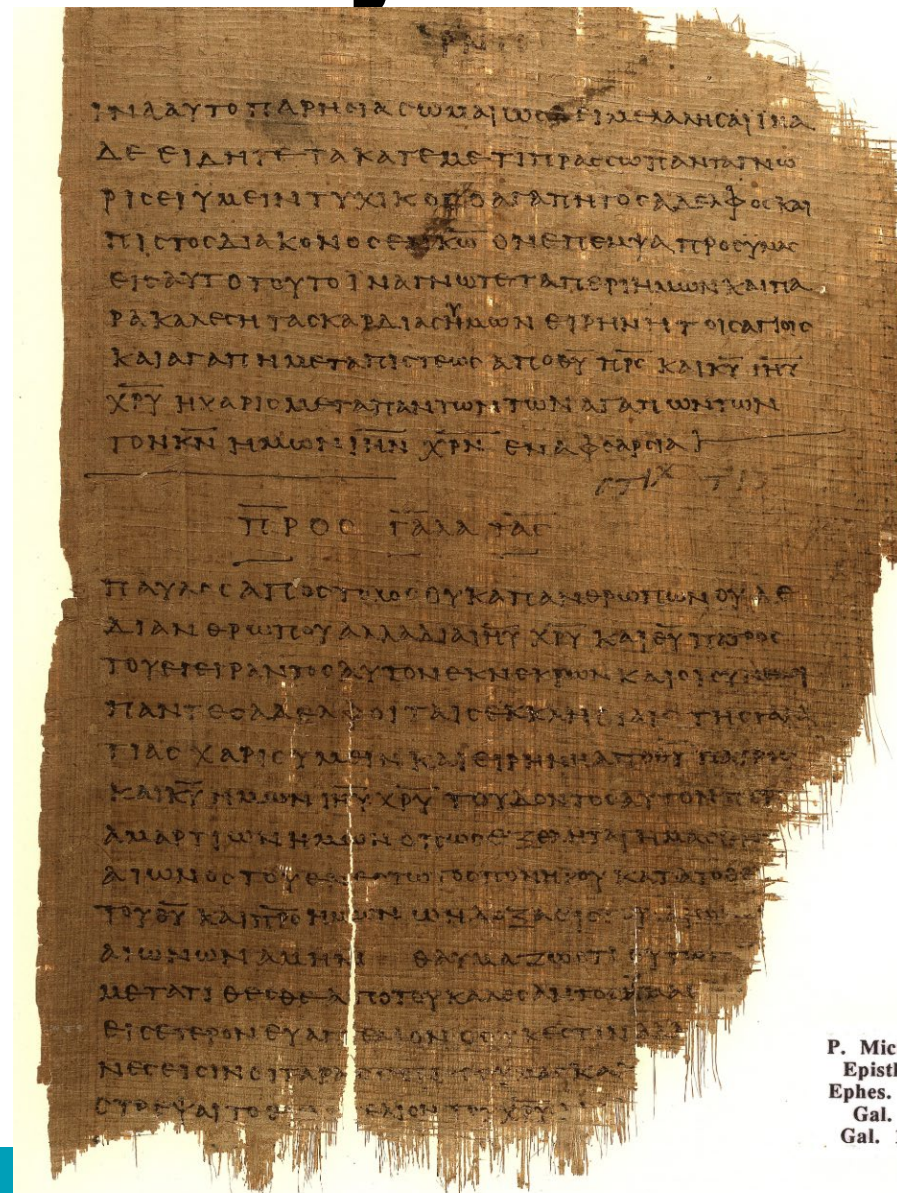 ΙΝΑΑΥΤΟΠΑΡΗϹΙΑϹΩΜΑΙΩϹΔΕΙΜΕΛΑΛΗϹΑΙΙΝΑ
ΔΕΕΙΔΗΤΕΤΑΚΑΤΕΜΕΤΙΠΡΑϹϹΩΠΑΝΤΑΓΝΩ
ΡΙϹΕΙΥΜΕΙΝΤΥΧΙΚΟϹΟΑΓΑΠΗΤΟϹΑΔΕΛΦΟϹΚΑΙ
ΠΙϹΤΟϹΔΙΑΚΟΝΟϹΕΝΚ̅Ω̅ΟΝΕΠΕΜΨΑΠΡΟϹΥΜΑϹ
ΕΙϹΑΥΤΟΤΟΥΤΟΙΝΑΓΝΩΤΕΤΑΠΕΡΙΗΜΩΝΚΑΙΠΑ
ΡΑΚΑΛΕϹΗΤΑϹΚΑΡΔΙΑϹΥΜΩΝΕΙΡΗΝΗΤΟΙϹΑΓΙΟΙϹ
ΚΑΙΑΓΑΠΗΜΕΤΑΠΙϹΤΕΩϹΑΠΟΘ̅Υ̅Π̅Ρ̅Ϲ̅ΚΑΙΚ̅Υ̅Ι̅Η̅Υ̅
Χ̅Ρ̅Υ̅ΗΧΑΡΙϹΜΕΤΑΠΑΝΤΩΝΤΩΝΑΓΑΠΩΝΤΩΝ
ΤΟΝΚ̅Ν̅ΗΜΩΝΙ̅Η̅Ν̅Χ̅Ρ̅Ν̅ΕΝΑΦΘΑΡϹΙΑ
ϹΤΙΧ
ΠΡΟϹ ΓΑΛΑΤΑϹ
ΠΑΥΛΟϹΑΠΟϹΤΟΛΟϹΟΥΚΑΠΑΝΘΡΩΠΩΝΟΥΔΕ
ΔΙΑΝΘΡΩΠΟΥΑΛΛΑΔΙΑΙ̅Η̅Υ̅Χ̅Ρ̅Υ̅ΚΑΙΘ̅Υ̅ΠΑΤΡΟϹ
ΤΟΥΕΓΕΙΡΑΝΤΟϹΑΥΤΟΝΕΚΝΕΚΡΩΝΚΑΙΟΙϹΥΝΕΜΟΙ
ΠΑΝΤΕϹΑΔΕΛΦΟΙΤΑΙϹΕΚΚΛΗϹΙΑΙϹΤΗϹΓΑΛΑ
ΤΙΑϹΧΑΡΙϹΥΜΕΙΝΚΑΙΕΙΡΗΝΗΑΠΟΘ̅Υ̅ΠΑΤΡΟϹ
ΚΑΙΚ̅Υ̅ΗΜΩΝΙ̅Η̅Υ̅Χ̅Ρ̅Υ̅ΤΟΥΔΟΝΤΟϹΑΥΤΟΝΠΕΡ
ΑΜΑΡΤΙΩΝΗΜΩΝΟΠΩϹΕΞΕΛΗΤΑΙΗΜΑϹΕΚ
ΑΙΩΝΟϹΤΟΥΕΝΕϹΤΩΤΟϹΠΟΝΗΡΟΥΚΑΤΑΤΟΘΕ
ΤΟΥΘ̅Υ̅ΚΑΙΠ̅Ρ̅Ο̅ΗΜΩΝΩΗΔΟΞΑ
ΑΙΩΝΩΝΑΜΗΝ ΘΑΥΜΑΖΩΟΤΙΟΥΤΩϹ
ΜΕΤΑΤΙΘΕϹΘΕΑΠΟΤΟΥΚΑΛΕϹΑΝΤΟϹΥΜΑϹ
ΕΙϹΕΤΕΡΟΝΕΥΑΓΓΕΛΙΟΝΟΟΥΚΕϹΤΙΝΑΛΛ
ΝΕϹΕΙϹΙΝΟΙΤΑΡΑϹϹΟΝΤΕϹΥΜΑϹΚΑΙ
ϹΤΡΕΨΑΙΤΟΕΥΑΓΓΕΛΙΟΝΤΟΥΧ̅Ρ̅Υ̅
P. Mic
Epistl
Ephes.
Gal.
Gal.